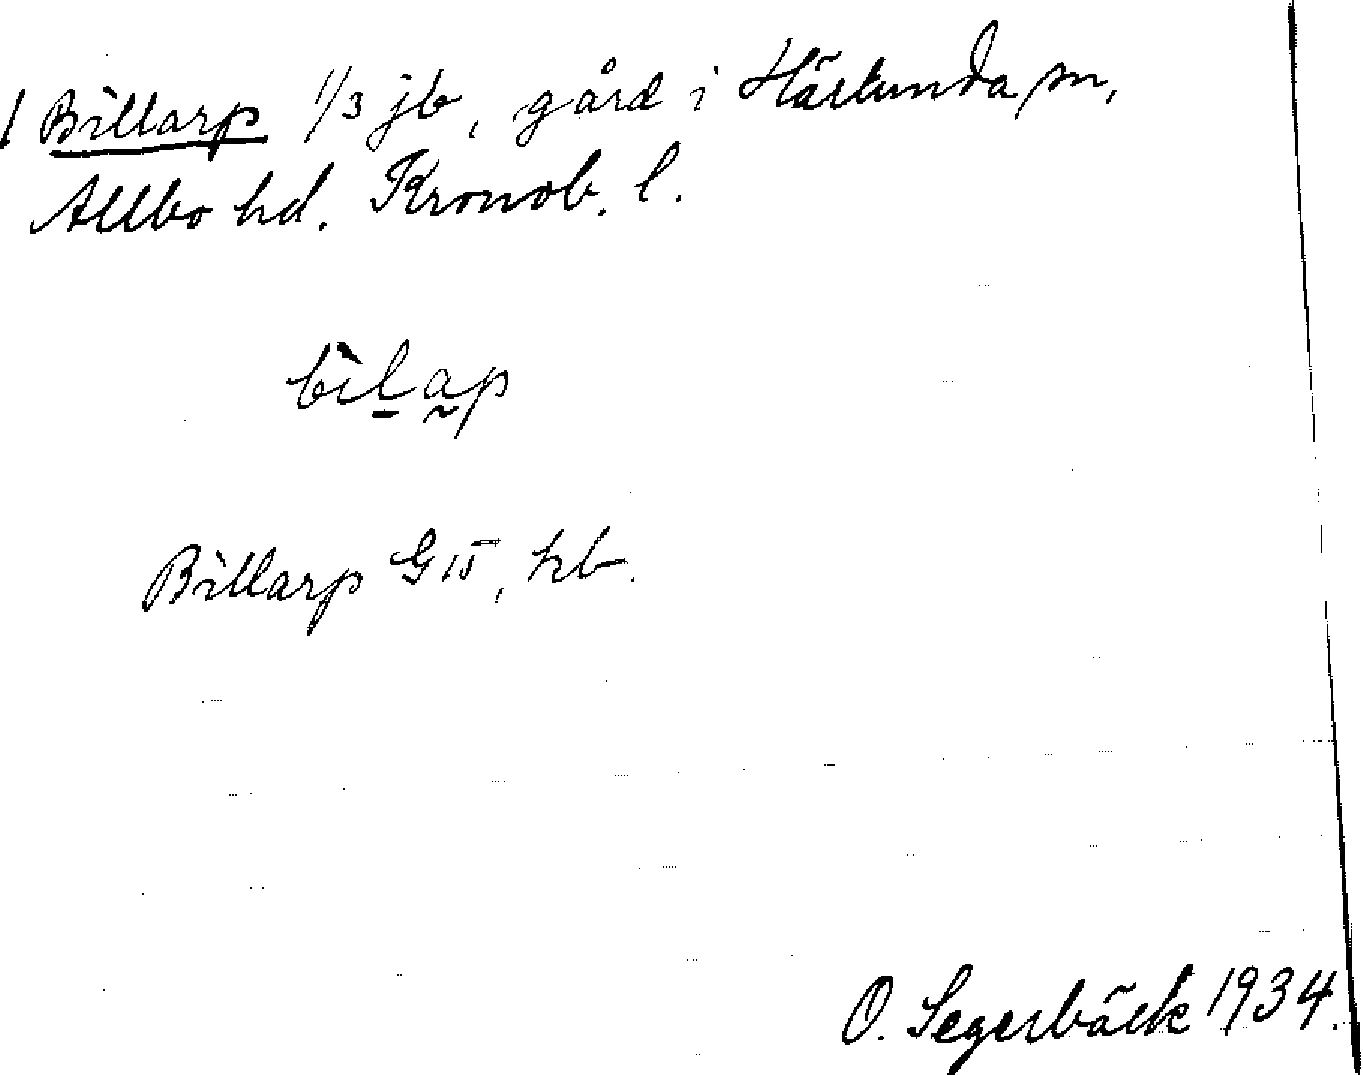 1 Billarp 1/3 jb, gård i Härlunda sn,
Allbo hd. Kronob. l.
bìl̠a̰p
Billarp G 15, kb.
O. Segerbäck 1934.